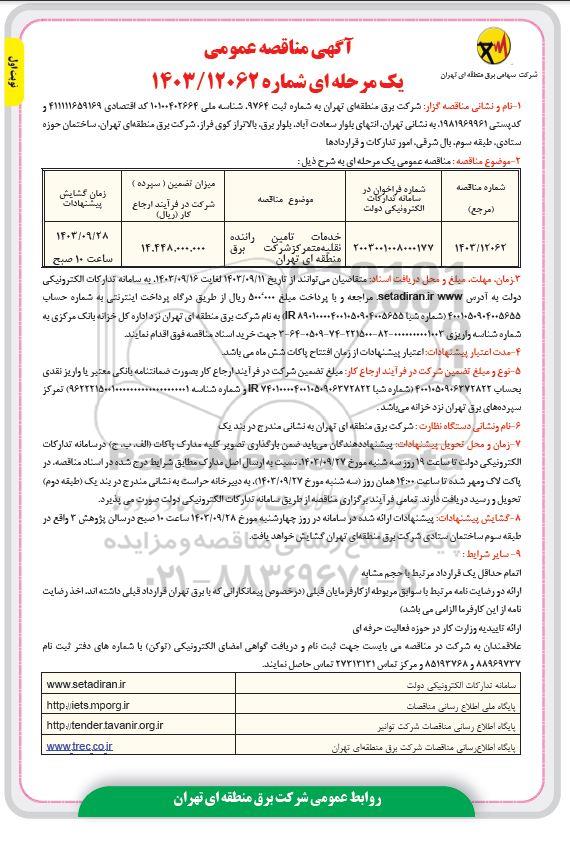 نوبت اول
شرکت سهامی برق منطقه ای تهران
آگهی مناقصه عمومی
یک مرحله ای شماره ۱۴۰۳/۱۲۰۶۲
۱-نام و نشانی مناقصه گزار: شرکت برق منطقه‌ای تهران به شماره ثبت ۹۷۶۴، شناسه ملی ۱۰۱۰۰۴۰۲۶۶۴ کد اقتصادی ۴۱۱۱۱۱۶۵۹۱۶۹ و
کدپستی ۱۹۸۱۹۶۹۹۶۱، به نشانی تهران، انتهای بلوار سعادت آباد، بلوار برق، بالاتراز کوی فراز، شرکت برق منطقه‌ای تهران، ساختمان حوزه
ستادی، طبقه سوم، بال شرقی، امور تدارکات و قراردادها
۲-موضوع مناقصه: مناقصه عمومی یک مرحله ای به شرح ذیل:
شماره مناقصه (مرجع)
شماره فراخوان در سامانه تدارکات الکترونیکی دولت
موضوع مناقصه
میزان تضمین ( سپرده ) شرکت در فرآیند ارجاع کار (ریال)
زمان گشایش پیشنهادات
۱۴۰۳/۱۲۰۶۲
۲۰۰۳۰۰۱۰۰۸۰۰۰۱۷۷
خدمات تامین راننده نقلیه‌متمرکزشرکت برق منطقه ای تهران
۱۴.۴۴۸.۰۰۰.۰۰۰
۱۴۰۳/۰۹/۲۸ ساعت ۱۰ صبح
۳.زمان، مهلت، مبلغ و محل دریافت اسناد: متقاضیان می‌توانند از تاریخ ۱۴۰۳/۰۹/۱۱ لغایت ۱۴۰۳/۰۹/۱۶، به سامانه تدارکات الکترونیکی
دولت به آدرس www.setadiran.ir مراجعه و با پرداخت مبلغ ۵۰۰٬۰۰۰ ریال از طریق درگاه پرداخت اینترنتی به شماره حساب
۴۰۰۱۰۵۰۹۰۴۰۰۵۶۵۵ (شماره شبا IR ۸۹۰۱۰۰۰۰۴۰۰۱۰۵۰۹۰۴۰۰۵۶۵۵) به نام شرکت برق منطقه ای تهران نزد اداره کل خزانه بانک مرکزی به
شماره شناسه واریزی ۳-۶۴-۰۵۰۹-۷۴-۲۲۱۵۰۰-۸۲-۰۰۰۰۰۰۰۰۰۱۰۰۳ جهت خرید اسناد مناقصه فوق اقدام نمایند.
۴-مدت اعتبار پیشنهادات: اعتبار پیشنهادات از زمان افتتاح پاکات شش ماه می باشد.
۵-نوع و مبلغ تضمین شرکت در فرآیند ارجاع کار: مبلغ تضمین شرکت در فرآیند ارجاع کار بصورت ضمانتنامه بانکی معتبر یا واریز نقدی
بحساب ۴۰۰۱۰۵۰۹۰۶۳۷۲۸۲۲ (شماره شبا IR ۷۴۰۱۰۰۰۰۴۰۰۱۰۵۰۹۰۶۳۷۲۸۲۲ و شناسه) تمرکز
سپرده‌های برق تهران نزد خزانه می‌باشد.
۶-نام ونشانی دستگاه نظارت : شرکت برق منطقه ای تهران به نشانی مندرج در بند یک
۷-زمان و محل تحویل پیشنهادات: پیشنهاددهندگان می‌باید ضمن بارگذاری تصویر کلیه مدارک پاکات (الف، ب، ج) درسامانه تدارکات
الکترونیکی دولت تا ساعت ۱۹ روز سه شنبه مورخ ۱۴۰۳/۰۹/۲۷، نسبت به ارسال اصل مدارک مطابق شرایط درج شده در اسناد مناقصه، در
پاکت لاک ومهر شده تا ساعت ۱۴:۰۰ همان روز (سه شنبه مورخ ۱۴۰۳/۰۹/۲۷)، به دبیرخانه حراست به نشانی مندرج در بند یک (طبقه دوم)
تحویل و رسید دریافت دارند. تمامی فرآیند برگزاری مناقصه از طریق سامانه تدارکات الکترونیکی دولت صورت می پذیرد.
۸-گشایش پیشنهادات: پیشنهادات ارائه شده در سامانه در روز چهارشنبه مورخ ۱۴۰۳/۰۹/۲۸ ساعت ۱۰ صبح درسالن پژوهش ۳ واقع در
طبقه سوم ساختمان ستادی شرکت برق منطقه‌ای تهران گشایش خواهد یافت.
۹- سایر شرایط :
اتمام حداقل یک قرارداد مرتبط با حجم مشابه
ارائه دو رضایت نامه مرتبط با سوابق مربوطه از کارفرمایان قبلی (درخصوص پیمانکارانی که با برق تهران قرارداد قبلی داشته اند، اخذ رضایت
نامه از این کارفرما الزامی می باشد)
ارائه تاییدیه وزارت کار در حوزه فعالیت حرفه ای
علاقمندان به شرکت در مناقصه می بایست جهت ثبت نام و دریافت گواهی امضای الکترونیکی (توکن) با شماره های دفتر ثبت نام
۸۸۹۶۹۷۳۷ و ۸۵۱۹۳۷۶۸ و مرکز تماس ۲۷۳۱۳۱۳۱ تماس حاصل نمایند.
سامانه تدارکات الکترونیکی دولت www.setadiran.ir
پایگاه ملی اطلاع رسانی مناقصات http://iets.mporg.ir
پایگاه اطلاع رسانی مناقصات شرکت توانیر http://tender.tavanir.org.ir
پایگاه اطلاع‌رسانی مناقصات شرکت برق منطقه‌ای تهران www.trec.co.ir
روابط عمومی شرکت برق منطقه ای تهران
پایگاه اطلاع رسانی مناقصه و مزایده
۰۲۱-۸۸۳۴۹۶۷۰-۵